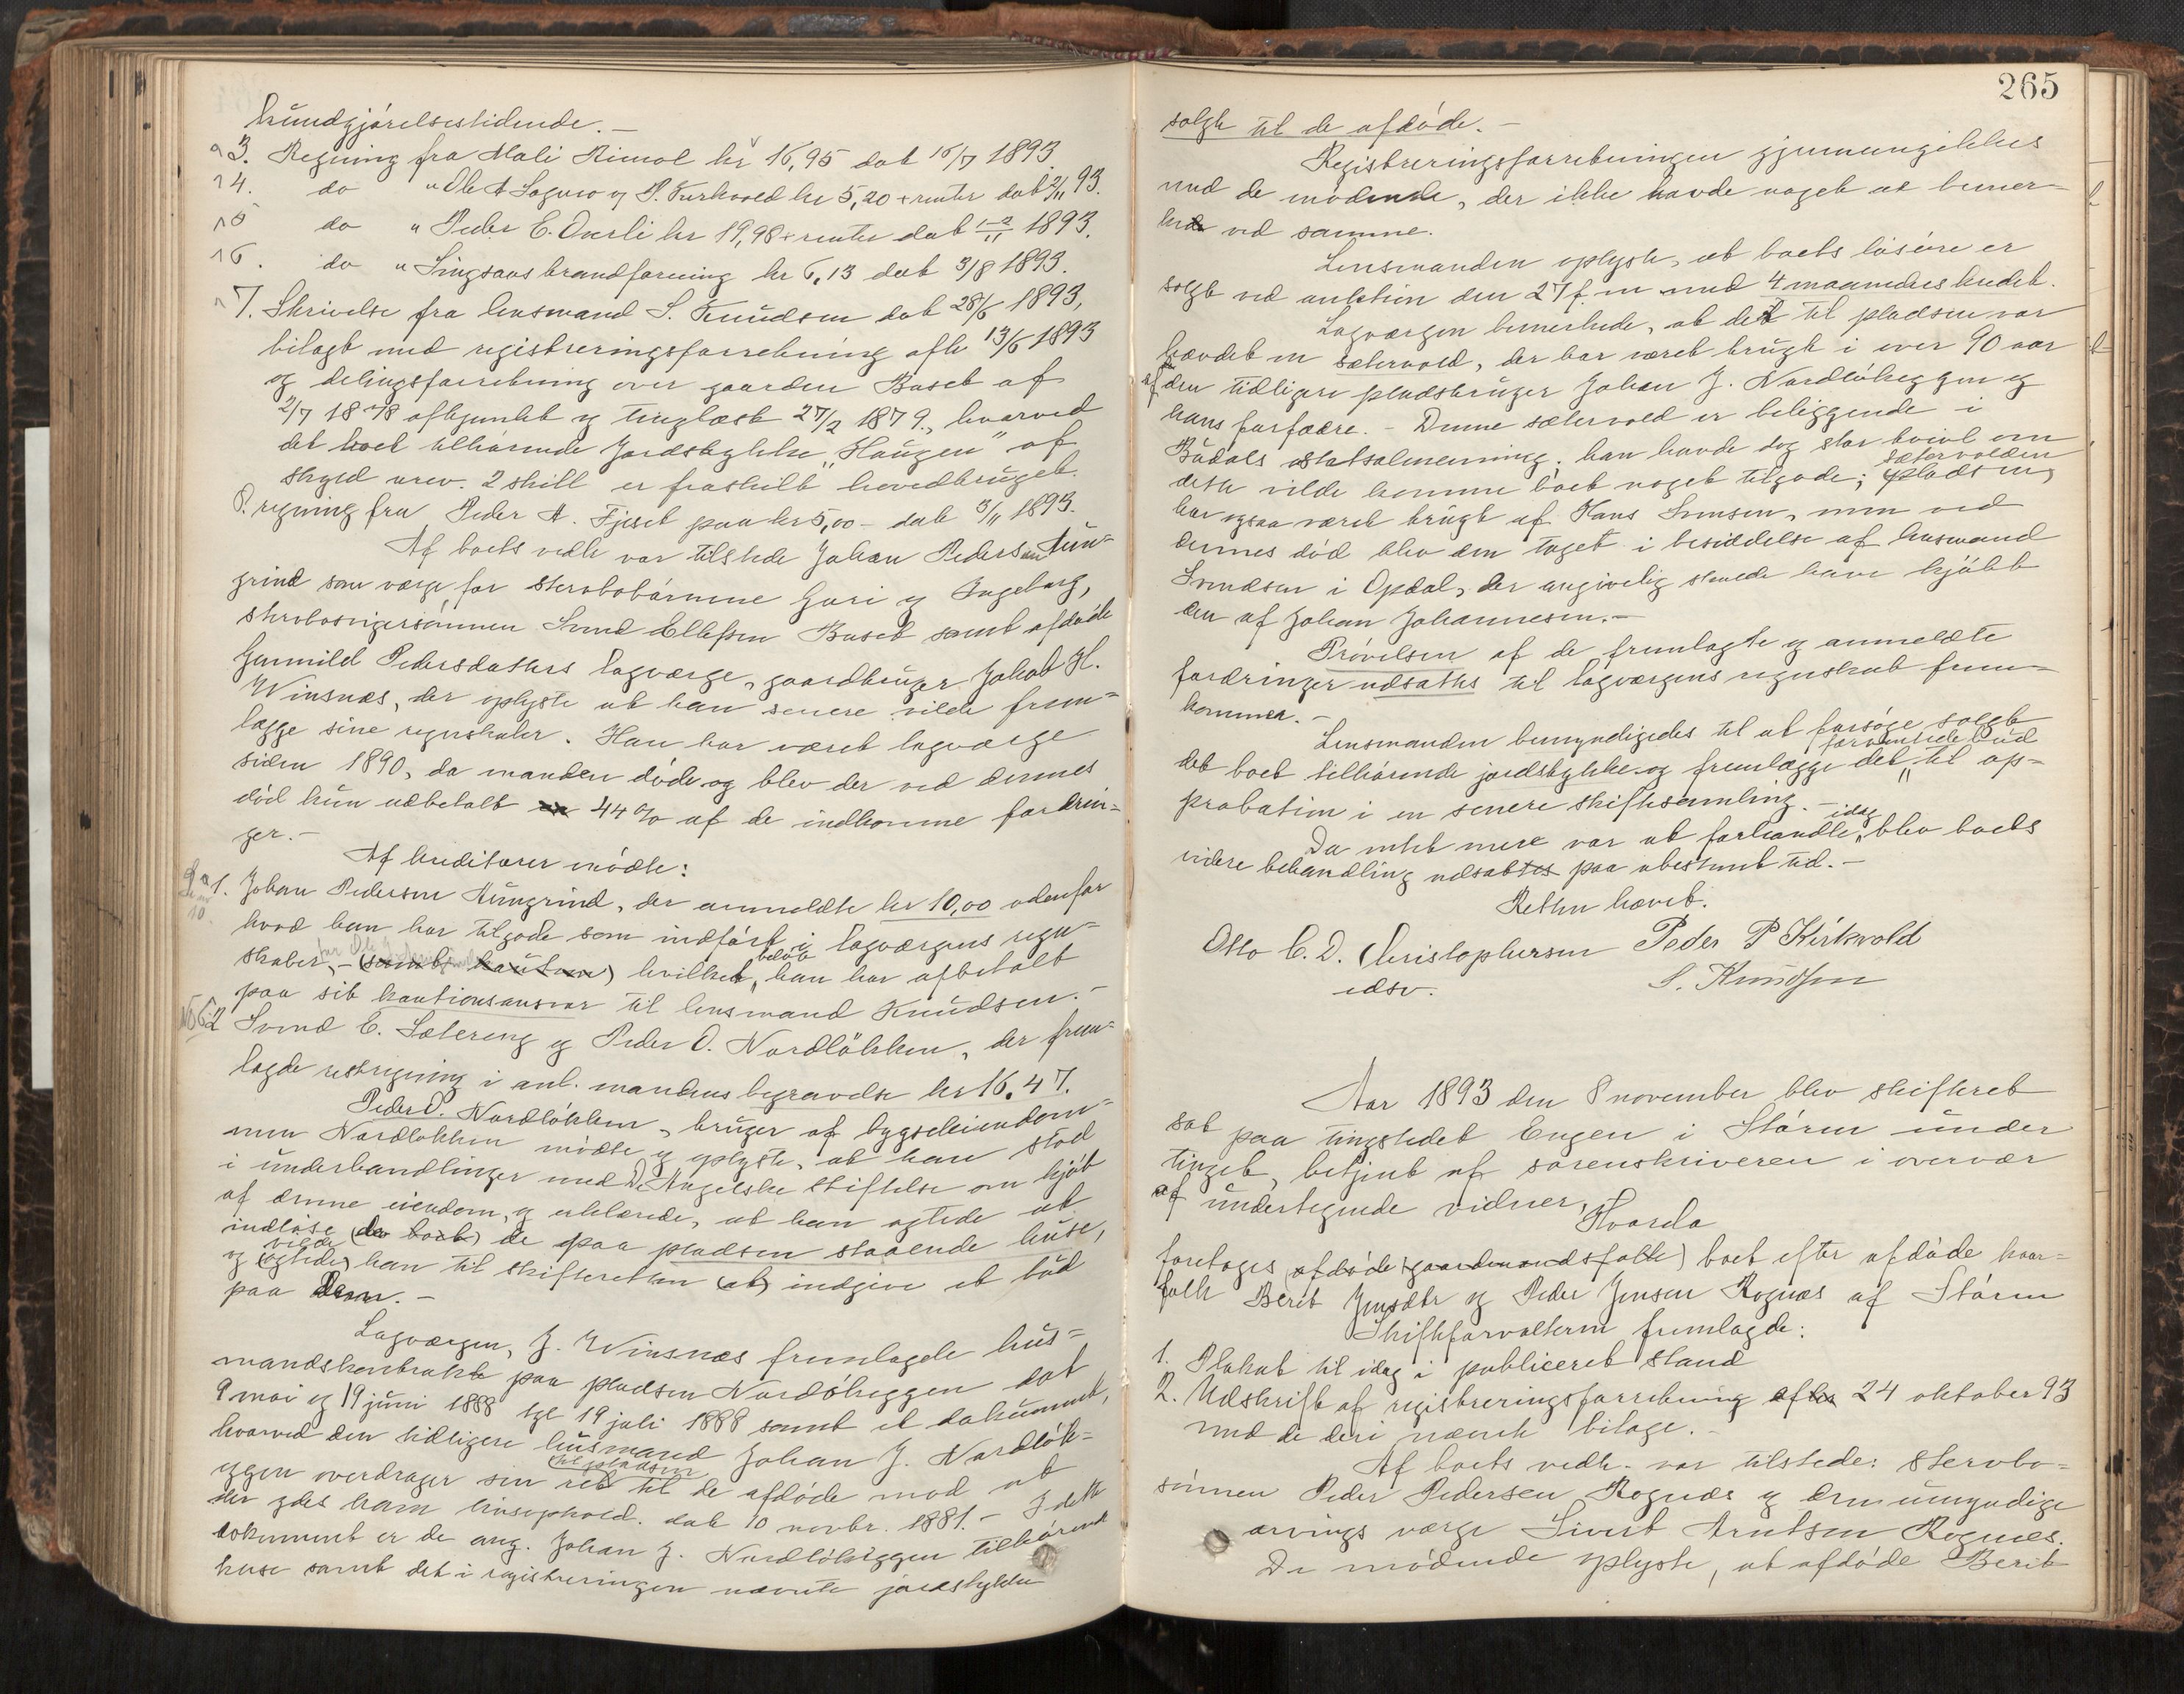 kundgjørelsestidende. -
3. Regning fra Mali Rimol kr 16,95 dat 15/7 1893.
4. do " Ole A Sagmo og P. Kirkvold kr 5,20 + renter dat 2/11 93.
5 do " Peder E. Enerli kr 19,98 + renter dat 1-2/11 1893.
6. do " Singsaas brandforening kr 6,13 dat 3/8 1893.
7. Skrivelse fra lensmand S. Knudsen dat 28/6 1893,
bilagt med registreringsforretning afh 13/6 1893
og delingsforretning over gaarden Buset af
2/7 1878 afhjemlet og tinglæst 27/2 1879, hvorved
det boet tilhørende Jordstykke "Haugen" af
skyld urev. 2 skill er fraskilt hovedbruget.
8. regning fra Peder A. Fjeset paa kr 5,00 - dat 3/11 1893.
Af boets vedk var tilstede Johan Pedersen Aun-
grind som værge for sterbobørnene Guri og Ingeborg,
sterbosvigersønnen Svend Ellefsen Buset samt afdøde
Gunnild Pedersdatters lagværge, gaardbruger Jakob H.
Winsnæs, der oplyste at han senere vilde frem-
lægge sine regnskaber. Han har været lagværge
siden 1890, da manden døde og blev der ved dennes
død kun udbetalt 44 % af de indkomne fordrin-
ger. -
Af kreditorer mødte:
1. Johan Pedersen Aungrind, der anmeldte kr 10,00 udenfor
hvad han har tilgode som indført i lagværgens regn-
skaber, - (som kautions) hvilket beløb han har afbetalt
paa sit kautionsansvar til lensmand Knudsen. -
2 Svend E. Sætereng og Peder O. Nordløkken, der frem-
lagde restregning i anl. mandens begravelse kr 16.47.
Peder O. Nordløkken, bruger af bygseleiendom-
men Nordløkken mødte og oplyste, at han stod
i underhandlinger med D. Angelske stiftelse om kjøb
af denne eiendom, og erklærede, at han agtede at
indløse (der boet) de paa pladsen staaende huse,
og (agtede) vilde han til skifteretten (at) indgive et bud
paa dem. -
Lagværgen, J. Winsnæs fremlagde hus-
mandskontrakt paa pladsen Nordløkeggen dat
9 mai og 19 juni 1888 tgl 19 juli 1888 samt et dokument,
hvorved den tidligere husmand Johan J. Nordløk-
eggen overdrager sin ret til pladsen til de afdøde mod at
der ydes ham livsophold. dat 10 novbr. 1881. - I dette
dokument er de ang. Johan J. Nordløkeggen tilhørende
huse samt det i registreringen nævnte jordstykke
265
solgte til de afdøde. -
Registreringsforretningen gjennemgikkes
med de mødende, der ikke havde noget at bemer-
ke ved samme.
Lensmanden oplyste, at boets løsøre er
solgt ved auktion den 27 f. m med 4 maaneders kredit.
Lagværgen bemerkede, at det til pladsen var
hævdet en sætervold, der har været brugt i over 90 aar
af den tidligere pladsbruger Johan J. Nordløkeggen og
hans forfædre. - Denne sætervold er beliggende i
Budals statsalmenning; han havde dog stor tvivl om
dette vilde komme boet noget tilgode; (pladsen) sætervolden
har ogsaa været brugt af Hans Svensen, men ved
dennes død blev den taget i besiddelse af lensmand
Svendsen i Opdal, der angivelig skulde have kjøbt
den af Johan Johannesen. -
Prøvelsen af de fremlagte og anmeldte
fordringer udsattes til lagværgens regnskab frem-
kommer. -
Lensmanden bemyndigedes til at forsøge solgt
det boet tilhørende jordstykke og fremlægge det forventede bud til ap-
probation i en senere skiftesamling. -
Da intet mere var at forhandle idag, blev boets
videre behandling udsat paa ubestemt tid. -
Retten hævet.
Otto C. D. Christophersen Peder P Kirkvold
edsv. S. Knudsen
Aar 1893 den 8 november blev skifteret
sat paa tingstedet Engen i Støren under
tinget, betjent af sorenskriveren i overvær
af undertegnede vidner,
Hvorda
foretages (afdøde gaardmandsfolk) boet efter afdøde kaar-
folk Berit Jensdtr og Peder Jensen Rognæs af Støren
Skifteforvalteren fremlagde:
1. Plakat til idag i publiceret stand
2. Udskrift af registreringsforretning afh 24 oktober 93
med de deri nævnte bilage. -
Af boets vedk. var tilstede: Sterbo-
sønnen Peder Pedersen Rognæs og den umyndige
arvings værge Sivert Arntsen Rognæs.
De mødende oplyste, at afdøde Berit